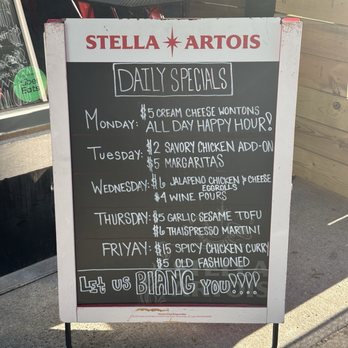 STELLA ARTOIS
DAILY SPECIALS
MONDAY: $5 CREAM CHEESE WONTONS
ALL DAY HAPPY HOUR!
TUESDAY: $2 SAVORY CHICKEN ADD-ON
$5 MARGARITAS
WEDNESDAY: $6 JALAPENO CHICKEN & CHEESE
EGGROLLS
$4 WINE POURS
THURSDAY: $5 GARLIC SESAME TOFU
$6 THAISPRESSO MARTINI
FRIYAY: $15 SPICY CHICKEN CURRY
$5 OLD FASHIONED
LET US BIANG YOU!!!!
Uber
Eats